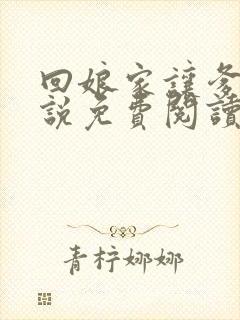 回娘家讓爹
說免費閱讀
青柠娜娜